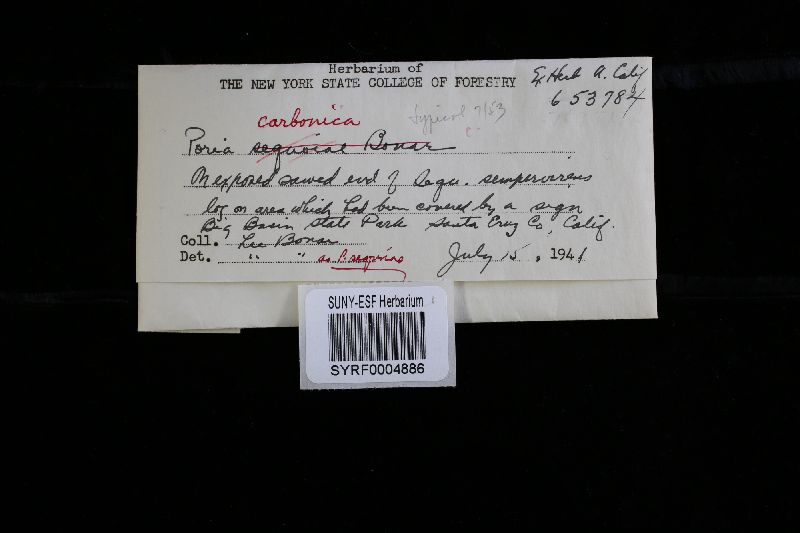 Herbarium of
THE NEW YORK STATE COLLEGE OF FORESTRY
Ex Herb. U. Calif
653784
carbonica
typical 7/53
Poria sequoiae Bonar
On exposed sawed end of Sequ. sempervirens
log on area which had been covered by a sign
Big Basin State Park Santa Cruz Co, Calif.
Coll. Lee Bonar
Det. " " as P. sequoiae July 15, 1941
SUNY-ESF Herbarium
SYRF0004886